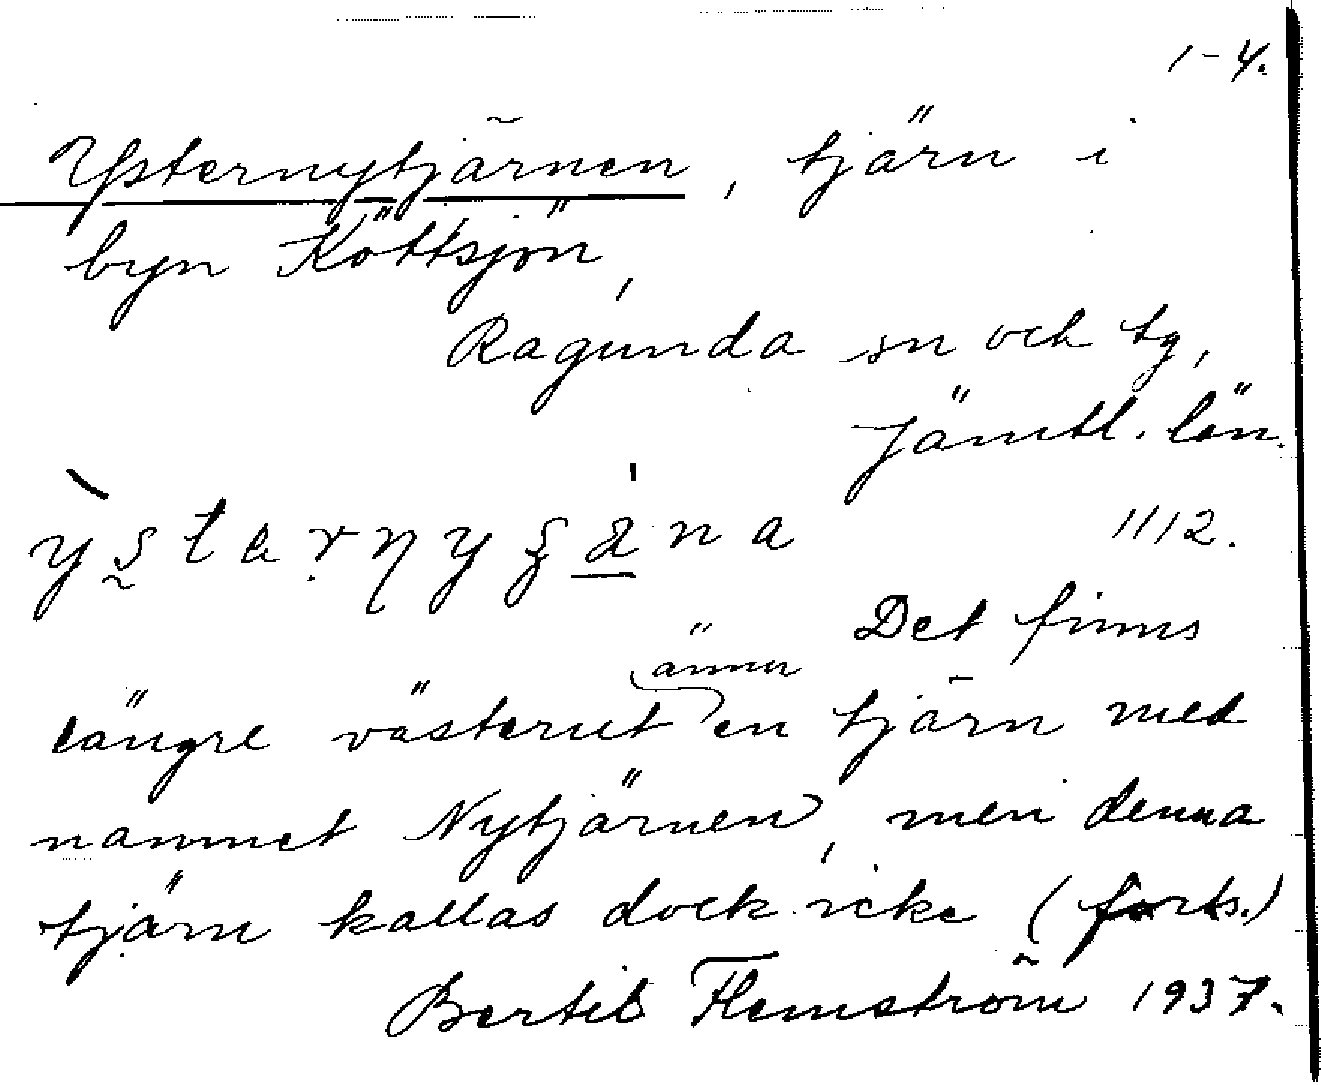 1-4.
Ysternytjärnen, tjärn i
byn Köttsjön,
Ragunda sn och tg,
Jämtl. län.
1112.
Det finns
längre västerut ännu en tjärn med
namnet Nytjärnen, men denna
tjärn kallas dock icke (forts.)
Bertil Flemström 1937.